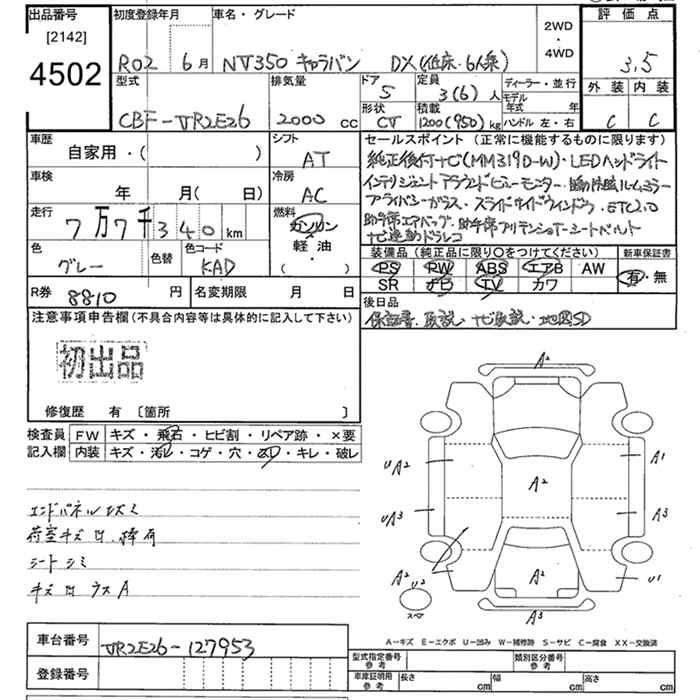 出品番号 初度登録年月 車名・グレード 2WD・4WD 評価点
[2142]
4502
R02 6月 NV350 キャラバン DX(低床・6人乗) 3.5
型式 排気量 ドア 5 定員 3(6)人 ディーラー・並行 外装 内装
CBF-VR2E26 2000 cc 形状 CV 積載 1200(950)kg モデル年式 年 ハンドル 左・右 C C
車歴 自家用・( ) シフト AT
車検 年 月( 日) 冷房 AC
走行 7万7千340 km 燃料 ガソリン・軽油・( )
色 グレー 色替 色コード KAD
R券 8810 円 名変期限 月 日
セールスポイント (正常に機能するものに限ります)
純正後付ナビ(MM319D-W)・LEDヘッドライト
インテリジェントアラウンドビューモニター・
プライバシーガラス・スライドサイドウインドウ・ETC2.0
助手席エアバッグ・助手席プリテンショナーシートベルト
ナビ連動ドラレコ
装備品 (純正品に限り○をつけてください) 新車保証書
PS PW ABS エアB AW 有・無
SR ナビ TV カワ
後日品
保証書、取説、ナビ取説、地図SD
注意事項申告欄(不具合内容等は具体的に記入して下さい)
初出品
修復歴 有 [箇所 ]
検査員 FW キズ・飛石・ヒビ割・リペア跡・×要
記入欄 内装 キズ・汚れ・コゲ・穴・スレ・キレ・破レ
エンドパネルキズミ
荷室キズ
シートシミ
キズ
A2
UA2 A1
A2
UA3 A3
A2 U2 A2 U1
スペア
A3
A-キズ E-エクボ U-凹み W-補修跡 S-サビ C-腐食 XX-交換済
車台番号 VR2E26-127953
登録番号
型式指定番号 参考 類別区分番号 参考
車庫証明用 参考 長さ cm 幅 cm 高さ cm